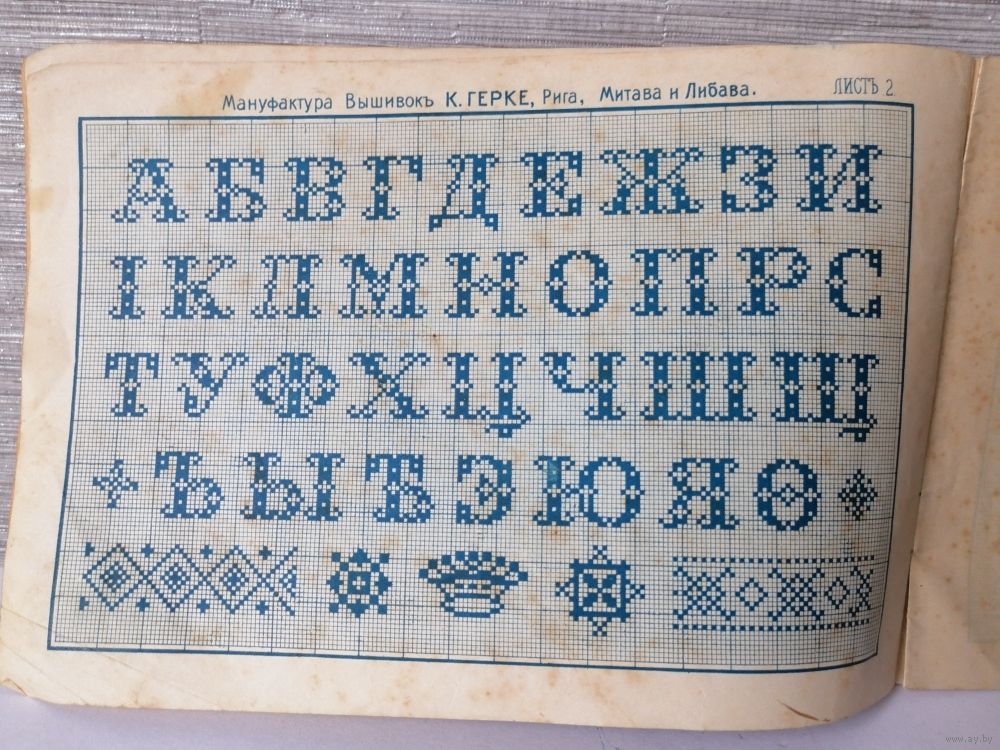 Мануфактура Вышивокъ К. ГЕРКЕ, Рига, Митава и Либава.
ЛИСТЪ 2.
А Б В Г Д Е Ж З И
І К Л М Н О П Р С
Т У Ф Х Ц Ч Ш Щ
Ъ Ы Ѣ Э Ю Я Ѳ
www.ay.by